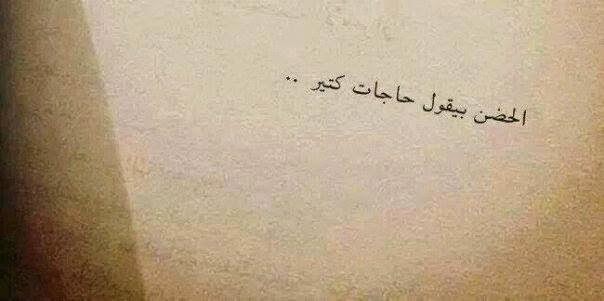 الحضن بيقول حاجات كتير ..